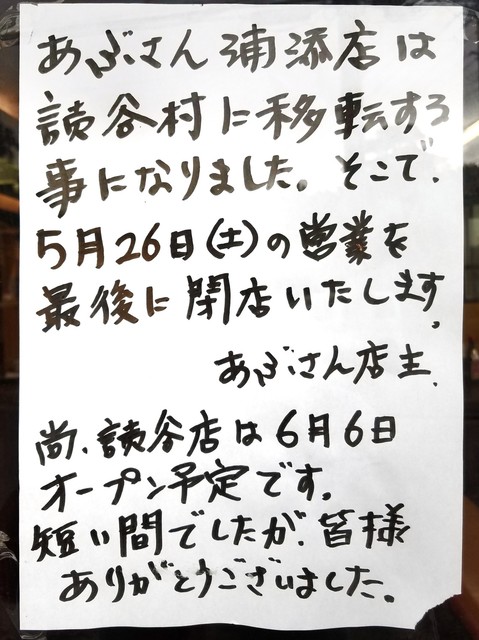 あぶさん浦添店は
読谷村に移転する
事になりました。そこで、
5月26日(土)の営業を
最後に閉店いたします。
あぶさん店主、
尚、読谷店は6月6日
オープン予定です。
短い間でしたが、皆様
ありがとうございました。